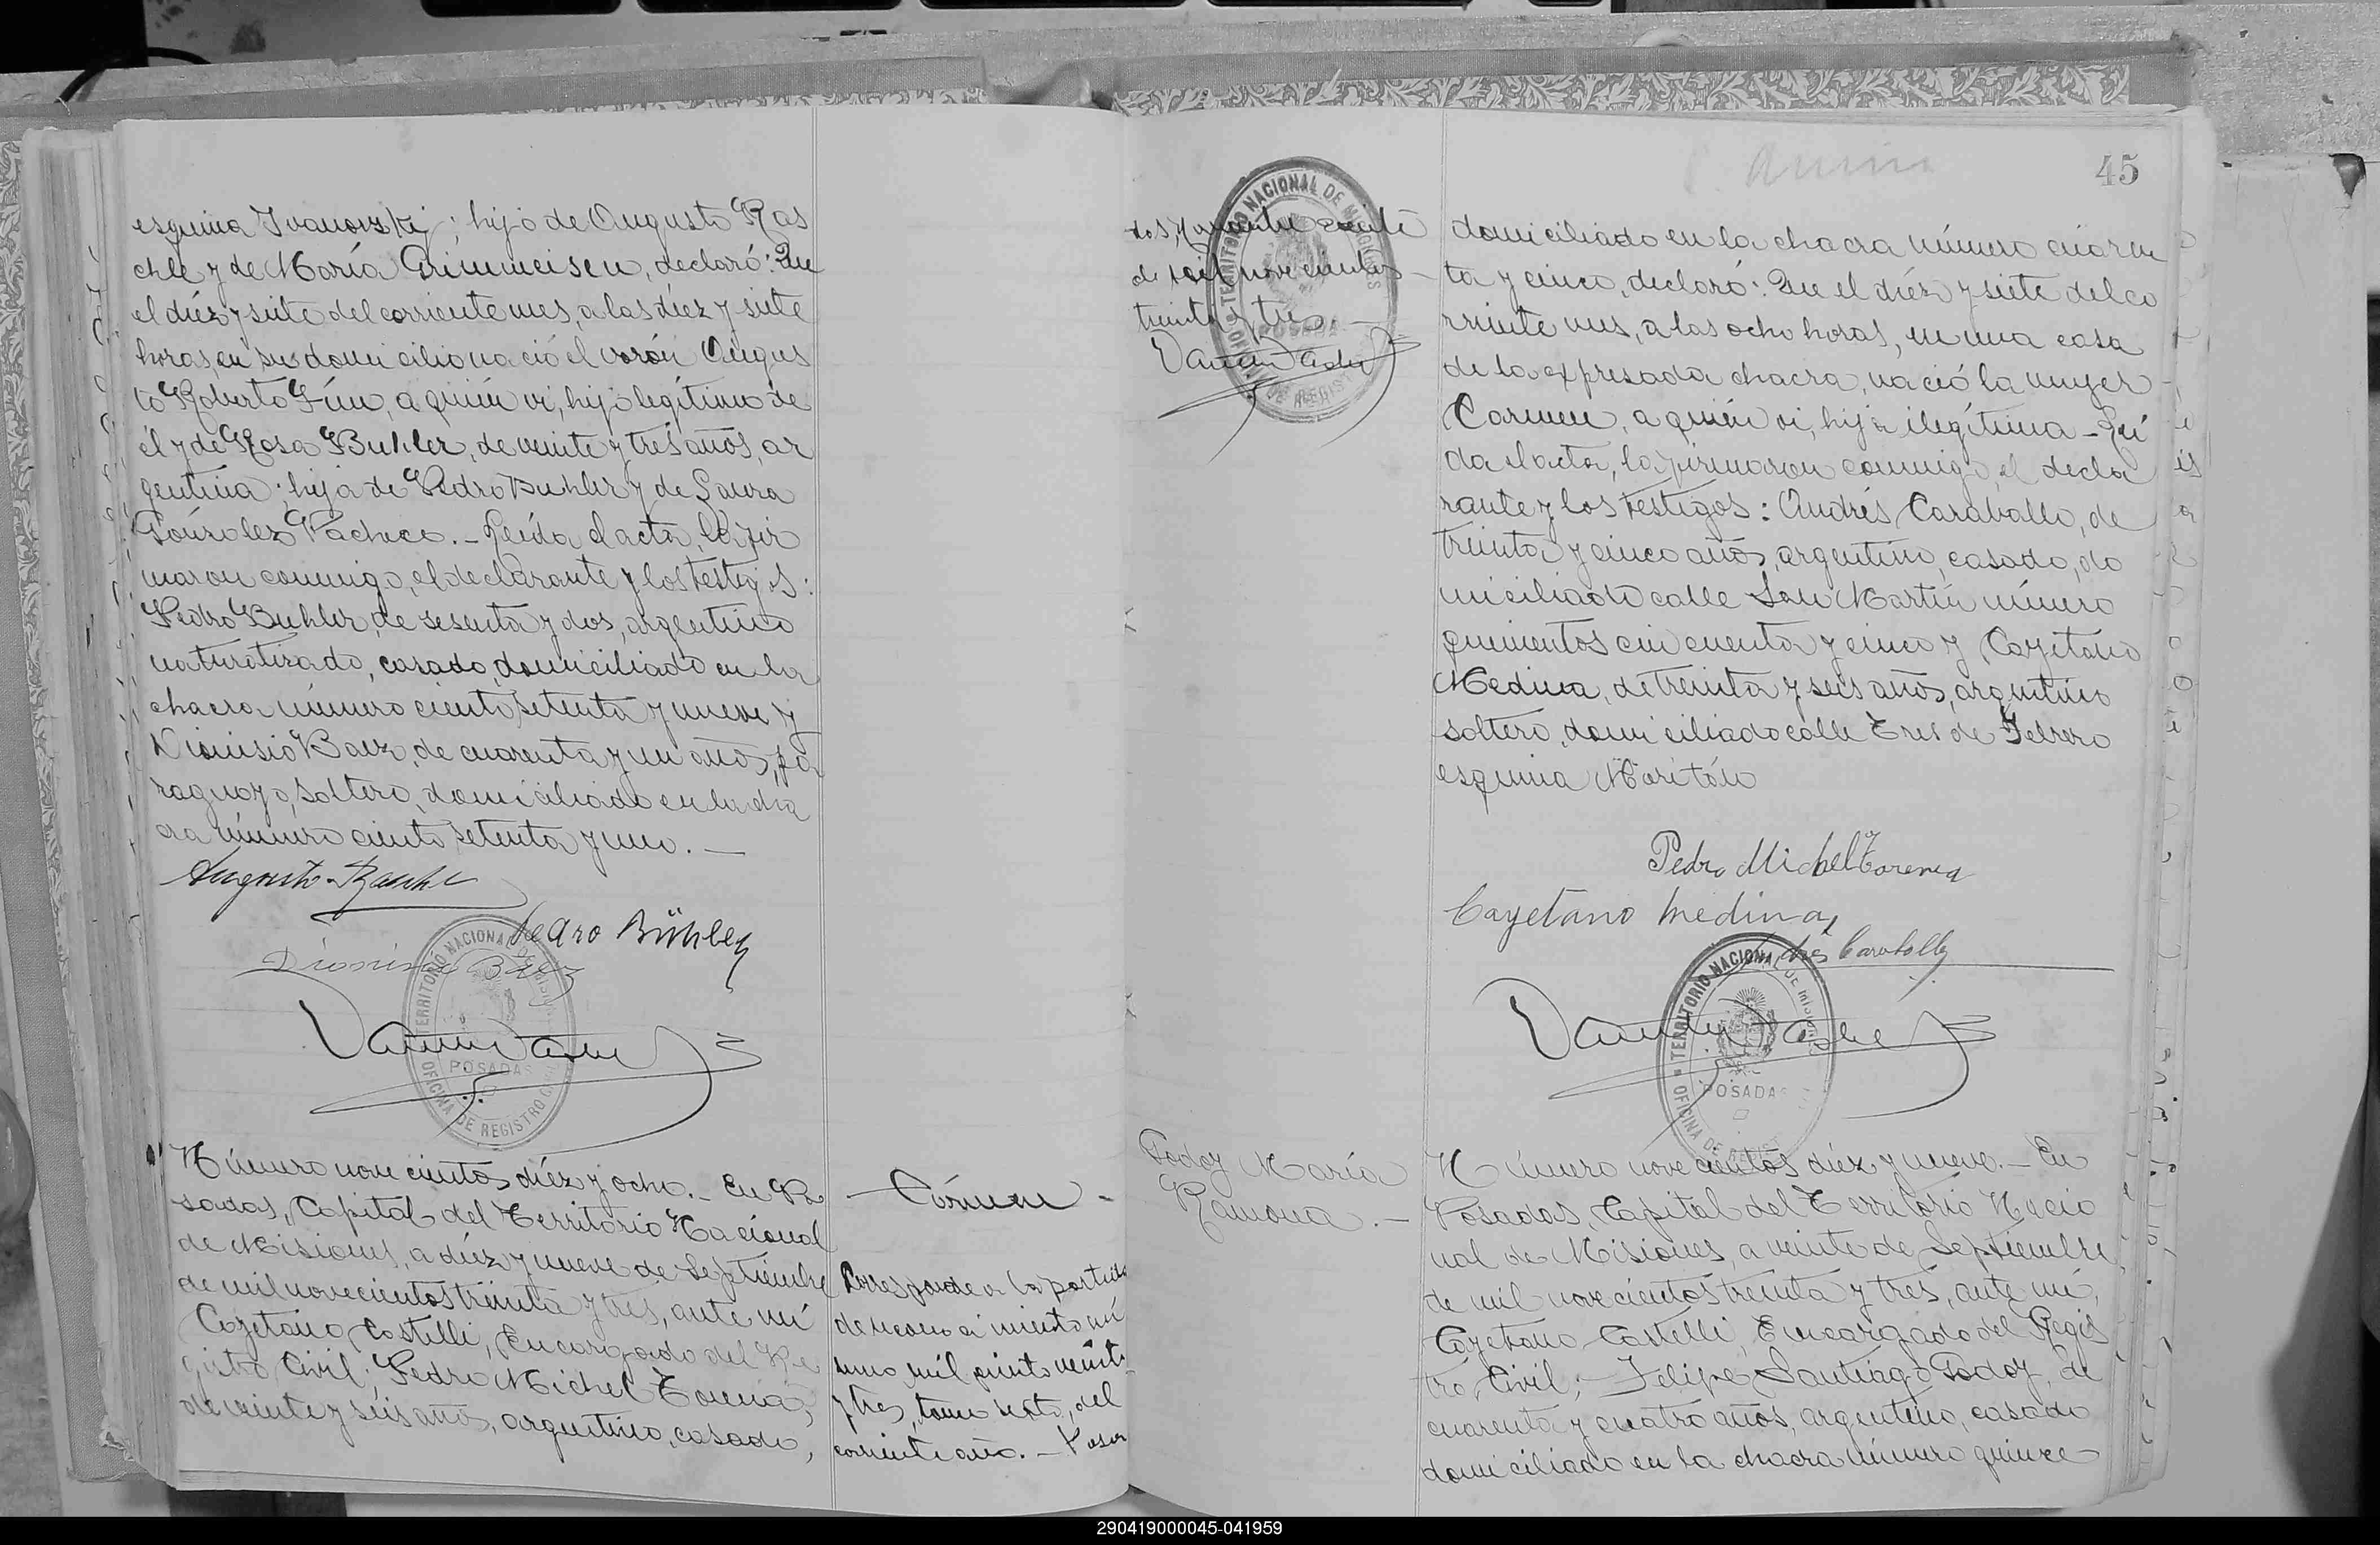 esquina Ivanowski; hijo de Augusto Ras
chle y de María Grimmeisen, declaró: Que
el diéz y siete del corriente mes, a las diez y siete
horas, en su domicilio nació el varón Augus
to Roberto, a quién vi, hijo legítimo de
él y de Rosa Buhler, de veinte y trés años, ar
gentina; hija de Pedro Buhler y de Laura
Gónzalez Pacheco. - Leída el acta, la fir
maron conmigo, el declarante y los testigos:
Pedro Buhler, de sesenta y dos, argentino
naturalizado, casado, domiciliado en la
chacra número ciento setenta y nueve y
Dionisio Baez, de cuarenta y un años, pa
raguayo, soltero, domiciliado en la cha
cra número ciento setenta y uno. -
Augusto Raschle
Pedro Bühler
Dionisio Baez
TERRITORIO NACIONAL DE Misiones
POSADAS
OFICINA DE REGISTRO
Número novecientos diéz y ocho. - En Po
sadas, Capital del Territorio Nacional
de Misiones, a diéz y nueve de Septiembre
de mil novecientos treinta y trés, ante mí
Cayetano Castelli, Encargado del Re
gistro Civil; Pedro Michel Torena,
de veinte y seis años, argentino, casado,
Cármen -
Corresponde a la partida
de reconocimiento nú
mero mil ciento veinte
y tres, tomo sexto, del
corriente año. - Posa
das, veinte
de mil novecientos
treinta y tres -
TERRITORIO NACIONAL DE MISIONES
POSADAS
DE REGIST
45
domiciliado en la chacra número cuaren
ta y cinco, declaró: Que el diéz y siete del co
rriente mes, a las ocho horas, en una casa
de la expresada chacra, nació la mujer
Carmen, a quién vi, hija ilegítima - Leí
da el acta, la firmaron conmigo, el decla
rante y los testigos: Andrés Caraballo, de
treinta y cinco años, argentino, casado, do
miciliado calle San Martín número
quinientos cincuenta y cinco y Cayetano
Medina, de treinta y seis años, argentino
soltero, domiciliado calle Tres de Febrero
esquina Maritón
Pedro Michel Torena
Cayetano Medina,
Andrés Caraballo
TERRITORIO NACIONAL DE Misiones
POSADAS
OFICINA DE REGIST
Godoy María
Ramona. -
Número novecientos diéz y nueve. - En
Posadas, Capital del Territorio Nacio
nal de Misiones, a veinte de Septiembre
de mil novecientos treinta y trés, ante mí,
Cayetano Castelli, Encargado del Regis
tro, Civil; Felipe Santiago Godoy, de
cuarenta y cuatro años, argentino, casado
domiciliado en la chacra número quince
290419000045-041959